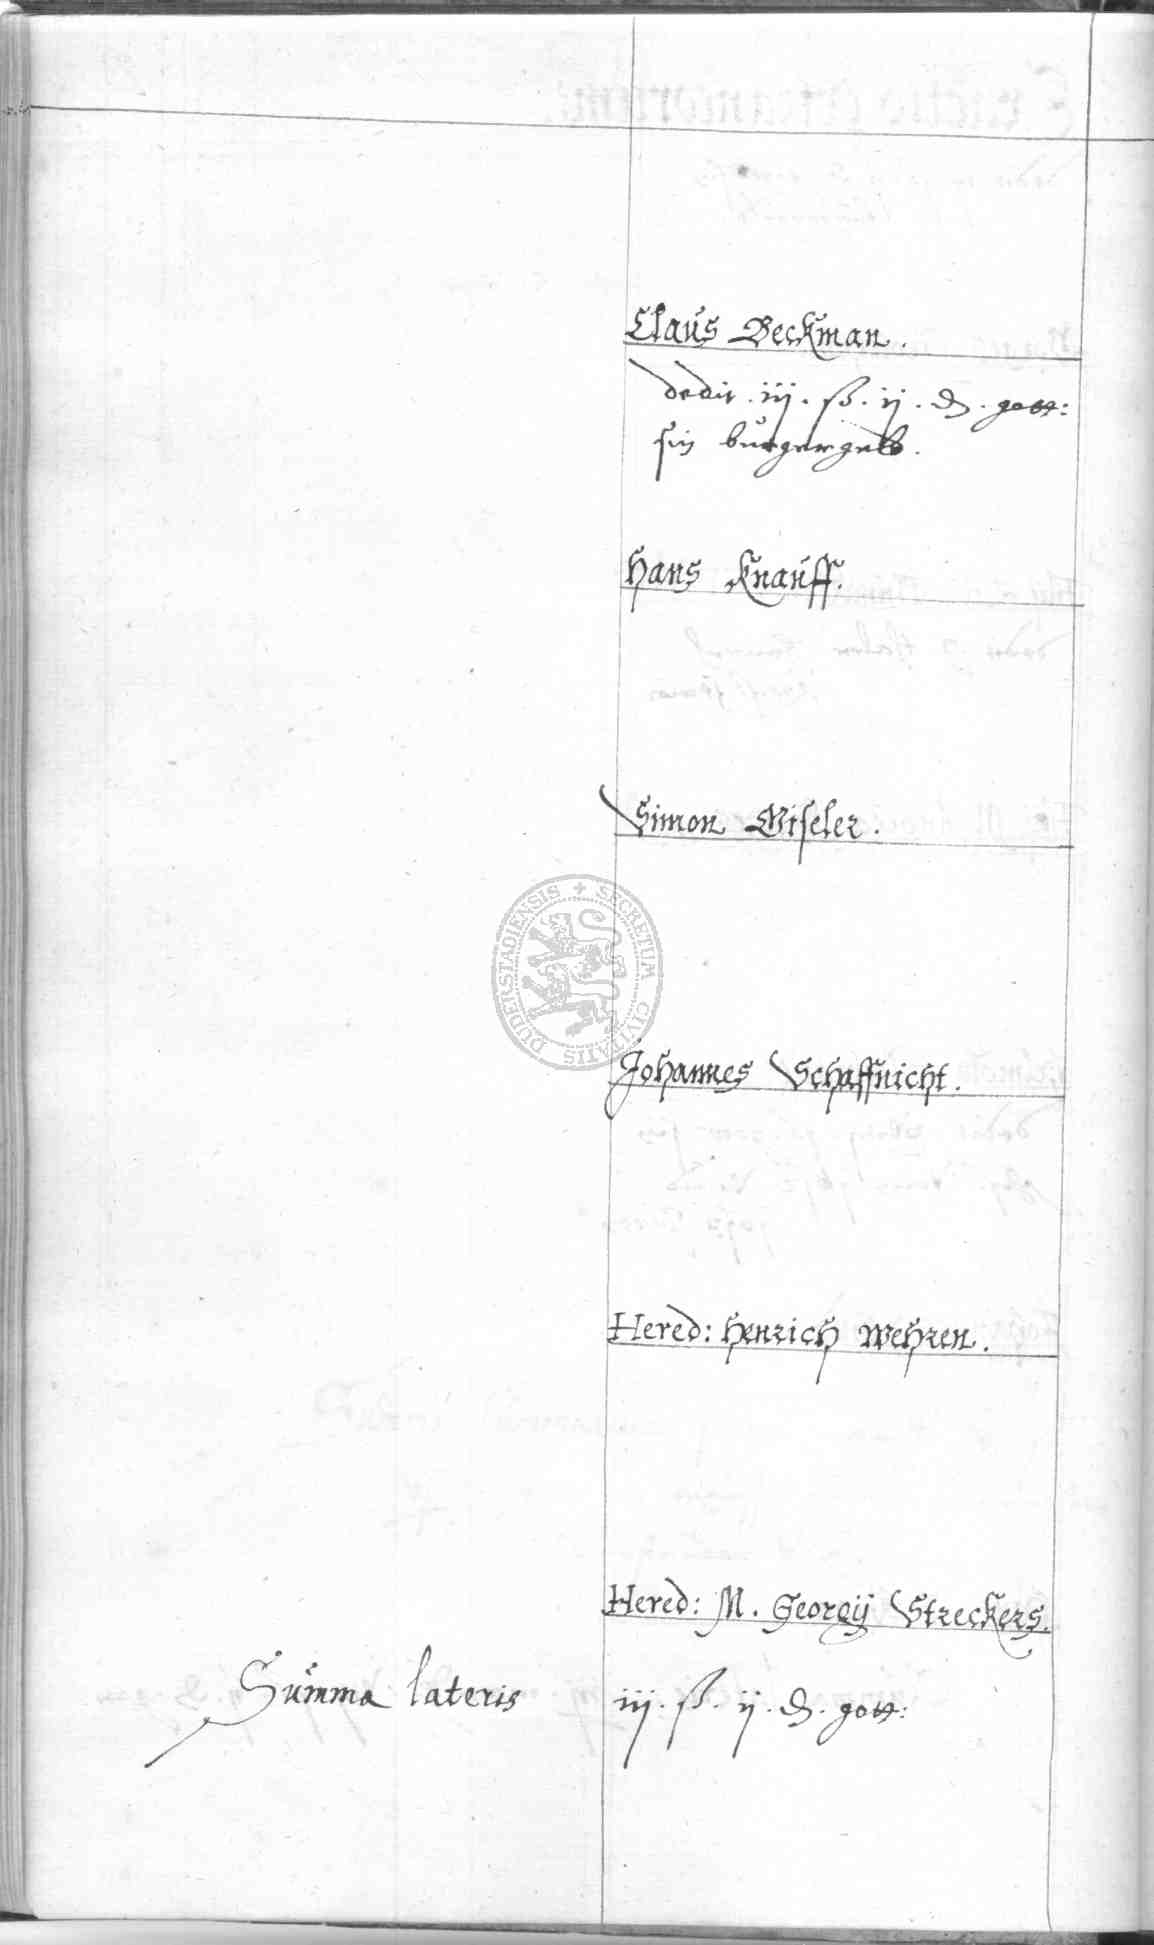 Claus Beckman.
dedit . iij . ß . ij . ₰ . gott:
sin burgergelt.
Hans Knauff.
Simon Giseler.
SECRETUM CIVITATIS DUDERSTADIENSIS +
Johannes Schaffnicht.
Hered: Henrich Wehren.
Hered: M. Georgij Streckers.
Summa lateris iij . ß . ij . ₰ . gott: